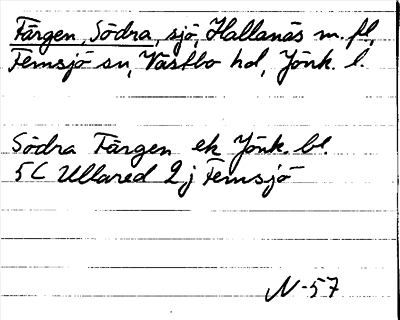 Färgen, Södra, sjö, Hallanäs m. fl,
Femsjö sn, Västbo hd, Jönk. l.
Södra Färgen ek Jönk. bl.
5C Ullared 2 j Femsjö
N-57